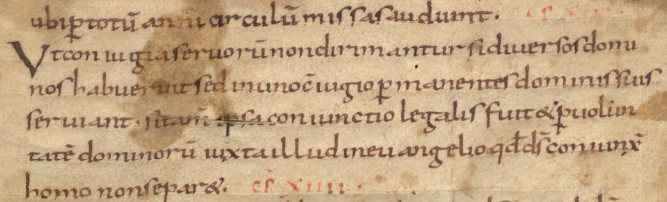 ubi p totū anni circulū missas audiunt. cp XIII
Ut coniugia servorū non dirimantur si diversos domi
nos habuerint sed in uno c̄iugio p manentes dominis suis
serviant. si tam̄ ipsa coniunctio legalis fuit & p volun
tatē dominorū iuxta illud in evangelio qd d̄s coniunx̄
homo non separ&. cp XIIII